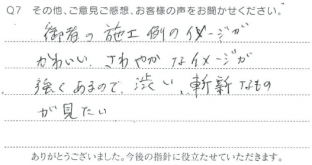 Q7 その他、ご意見ご感想、お客様の声をお聞かせください。
御者の施工例のイメージが
かわいい、さわやかなイメージが
強くあるので、渋い、斬新なもの
が見たい
ありがとうございました。今後の指針に役立たせていただきます。